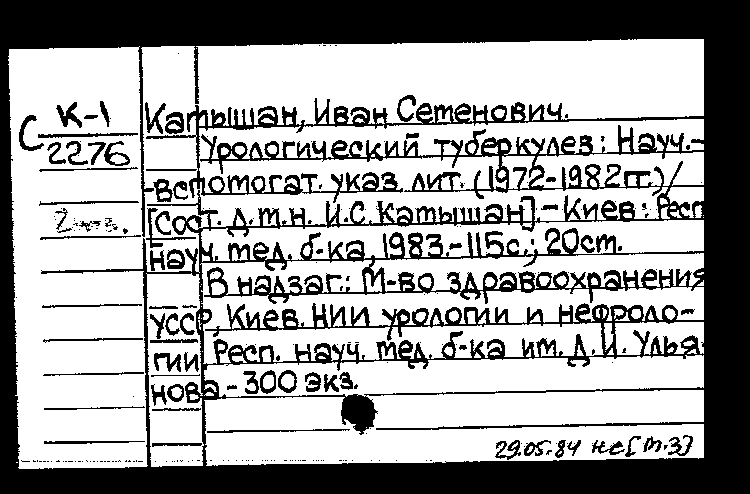 С К-1
2276
2 экз.
Катышан, Иван Семенович.
Урологический туберкулез: Науч.-
-вспомогат. указ. лит. (1972-1982гг.)/
[Сост. д.м.н. И.С. Катышан].- Киев: Респ
науч. мед. б-ка, 1983.-115с.; 20см.
В надзаг.: М-во здравоохранения
УССР, Киев. НИИ урологии и нефроло-
гии, Респ. науч. мед. б-ка им. Д.И. Улья-
нова.- 300 экз.
29.05.84